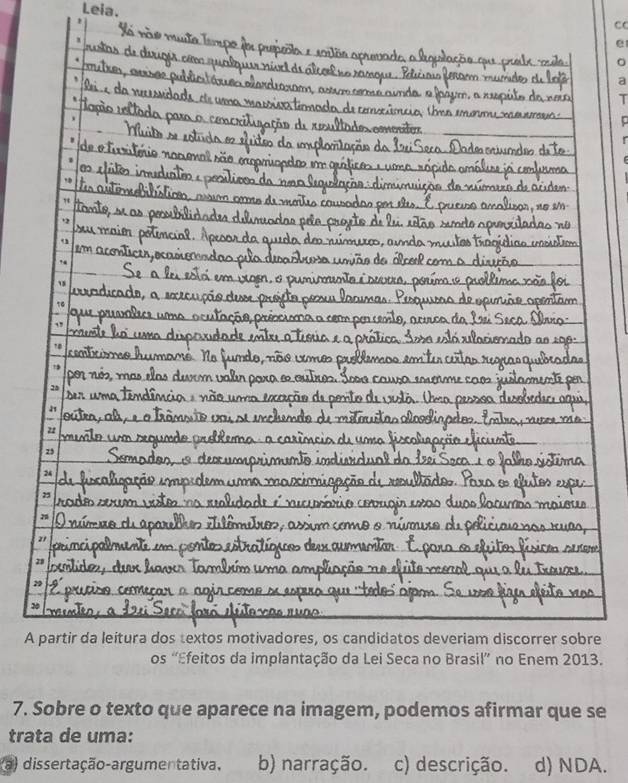 Leia.
Há não muito tempo foi proposta e então aprovada a legislação que proíbe mila
de dirigir com qualquer nível de álcool no sangue. Policiais foram
outros, avisos publicitários
é da necessidade de uma massiva tomada de consciência, Uma enorme
voltada para a concretização de resultados
Muito se estuda os efeitos da implantação da Lei Seca. Dados oriundos de te-
do território nacional são em gráficos e uma rápida análise já confirma
os efeitos imediatos e positivos da nova legislação: diminuição do número de aciden-
tes automobilísticos, assim como de mortes causadas por eles. É preciso analisar, no en-
tanto, se as possibilidades delineadas pelo projeto de lei estão sendo aproveitadas no
seu maior potencial. Apesar da queda dos números, ainda muitas tragédias insistem
em acontecer, ocasionadas pela desastrosa união do álcool com a direção
Se a lei está em vigor, a punimento é severo, porém o problema não foi
erradicado, a execução desse projeto possui lacunas. Pesquisas de opinião apontam
que prevalece uma aceitação, próxima a cem por cento, acerca da Lei Seca. Obvia-
mente há uma disparidade entre a teoria e a prática. Isso está relacionado ao ego-
centrismo humano. No fundo, não vemos problemas em ter certas regras quebradas
por nós, mas elas devem valer para os outros. Isso causa enorme caos justamente por
ser uma tendência e não uma exceção do ponto de vista. Uma pessoa desobedece aqui,
outra, ali, e o trânsito vai se enchendo de motoristas alcoolizados. Entra, nesse mo-
mento um segundo problema: a carência de uma fiscalização eficiente.
Somados, o descumprimento individual da Lei Seca e o falho sistema
de fiscalização impedem uma maximização de resultados. Para os efeitos espe-
rados serem vistos na realidade é necessário corrigir essas duas lacunas maiores
O número de aparelhos etilômetros, assim como o número de policiais nas ruas,
principalmente em pontos estratégicos deve aumentar. E para os efeitos físicos serem
sentidos, deve haver também uma ampliação no efeito moral que a lei trouxe.
É preciso começar a agir como se espera que todos ajam. Se isso fizer efeito nas
mentes, a Lei Seca fará efeito nas ruas.
A partir da leitura dos textos motivadores, os candidatos deveriam discorrer sobre
os “Efeitos da implantação da Lei Seca no Brasil” no Enem 2013.
7. Sobre o texto que aparece na imagem, podemos afirmar que se
trata de uma:
a) dissertação-argumentativa. b) narração. c) descrição. d) NDA.